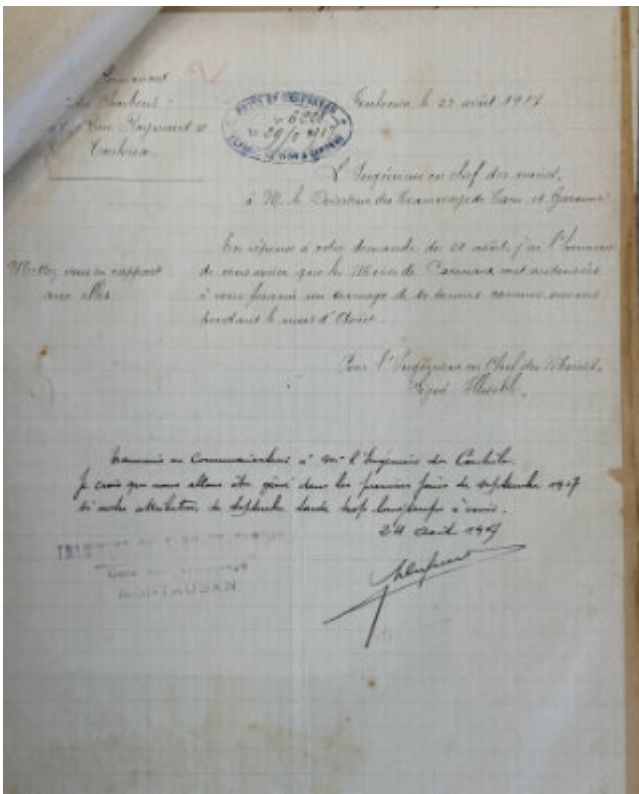 des Charbons
Toulouse
PONTS ET CHAUSSÉES
N° 6228
29/8 1917
TARN & GARONNE
Toulouse, le 22 août 1917
L'Ingénieur en chef des mines,
à M. le Directeur des Tramways de Tarn et Garonne
En réponse à votre demande du 20 août, j'ai l'honneur
de vous aviser que les Mines de Carmaux sont autorisées
à vous fournir un tonnage de tonnes comme
pendant le mois d'Août.
Mettez vous en rapport
avec elles
Pour l'Ingénieur en Chef des Mines,
Signé
Transmis en communication à Mr l'Ingénieur du Contrôle.
Je crois que nous allons être gêné dans les premiers jours de septembre 1917
si notre attribution de Septembre tarde trop longtemps à venir.
24 août 1917
MONTAUBAN